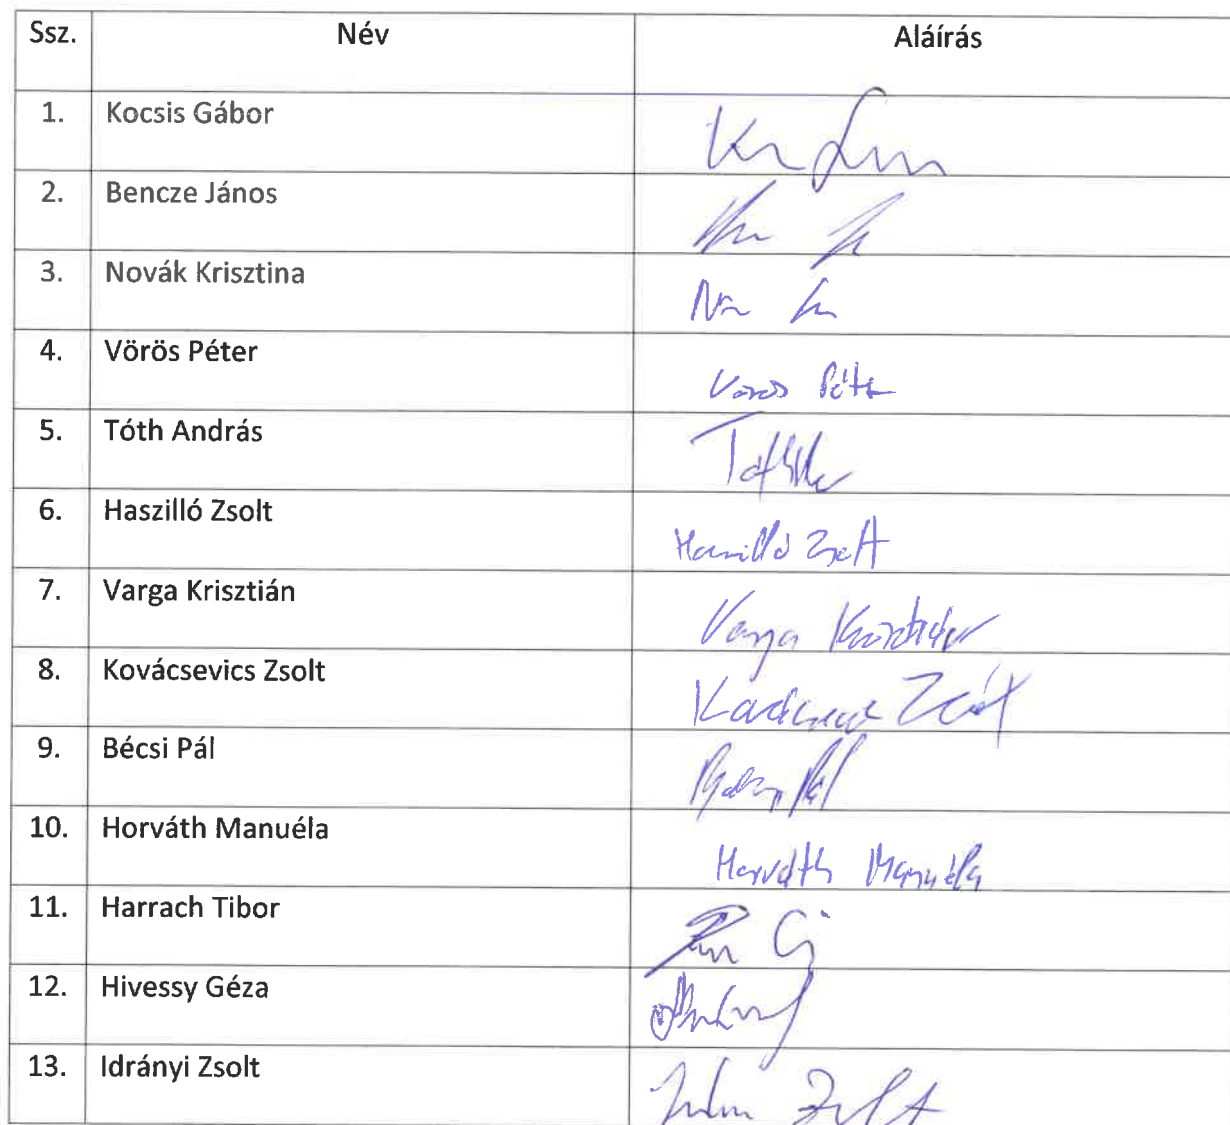 Ssz. Név Aláírás
1. Kocsis Gábor
2. Bencze János
3. Novák Krisztina
4. Vörös Péter Vörös Péter
5. Tóth András
6. Haszilló Zsolt Haszilló Zsolt
7. Varga Krisztián Varga Krisztián
8. Kovácsevics Zsolt
9. Bécsi Pál
10. Horváth Manuéla Horváth Manuéla
11. Harrach Tibor
12. Hivessy Géza
13. Idrányi Zsolt